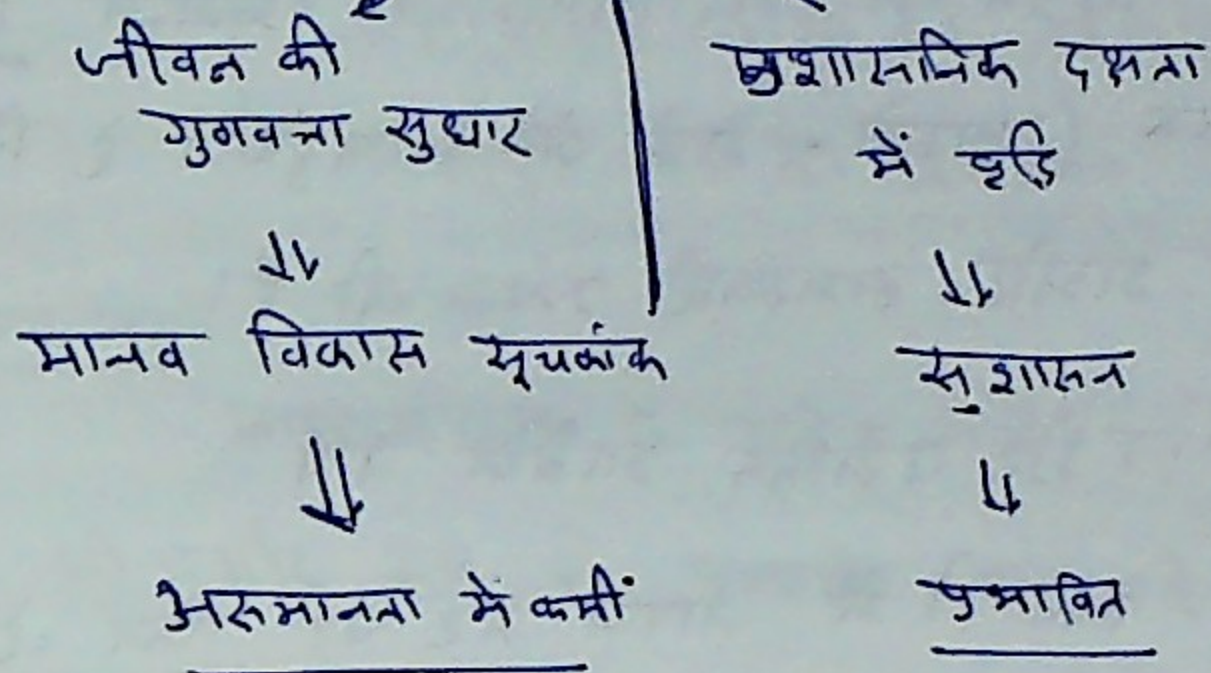 जीवन की
गुणवत्ता सुधार
⇓
मानव विकास सूचकांक
⇓
असमानता में कमीं
प्रशासनिक दक्षता
में वृद्धि
⇓
सुशासन
⇓
प्रभावित